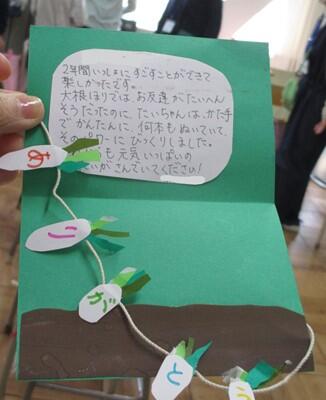 2年間いっしょにすごすことができて
楽しかったです。
大根ほりでは、お友達がたいへん
そうだったのに、たいちゃんは、かた手
でかんたんに、何本もぬいていて、
そのパワーにびっくりしました。
も元気いっぱいの
さんでいてください!
あ
り
が
と
う